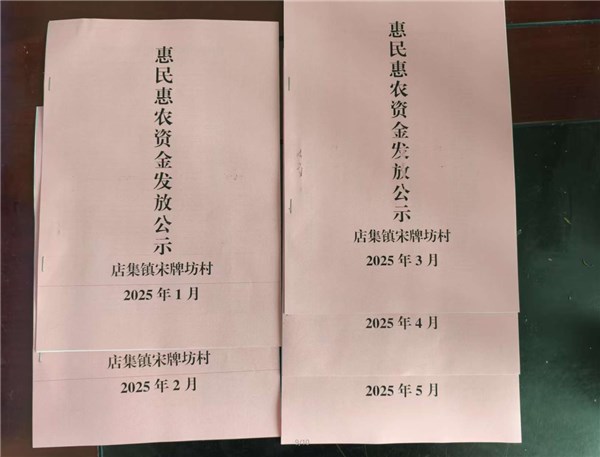 惠民惠农资金发放公示
店集镇宋牌坊村
2025 年 1 月
店集镇宋牌坊村
2025 年 2 月
惠民惠农资金发放公示
店集镇宋牌坊村
2025 年 3 月
2025 年 4 月
2025 年 5 月